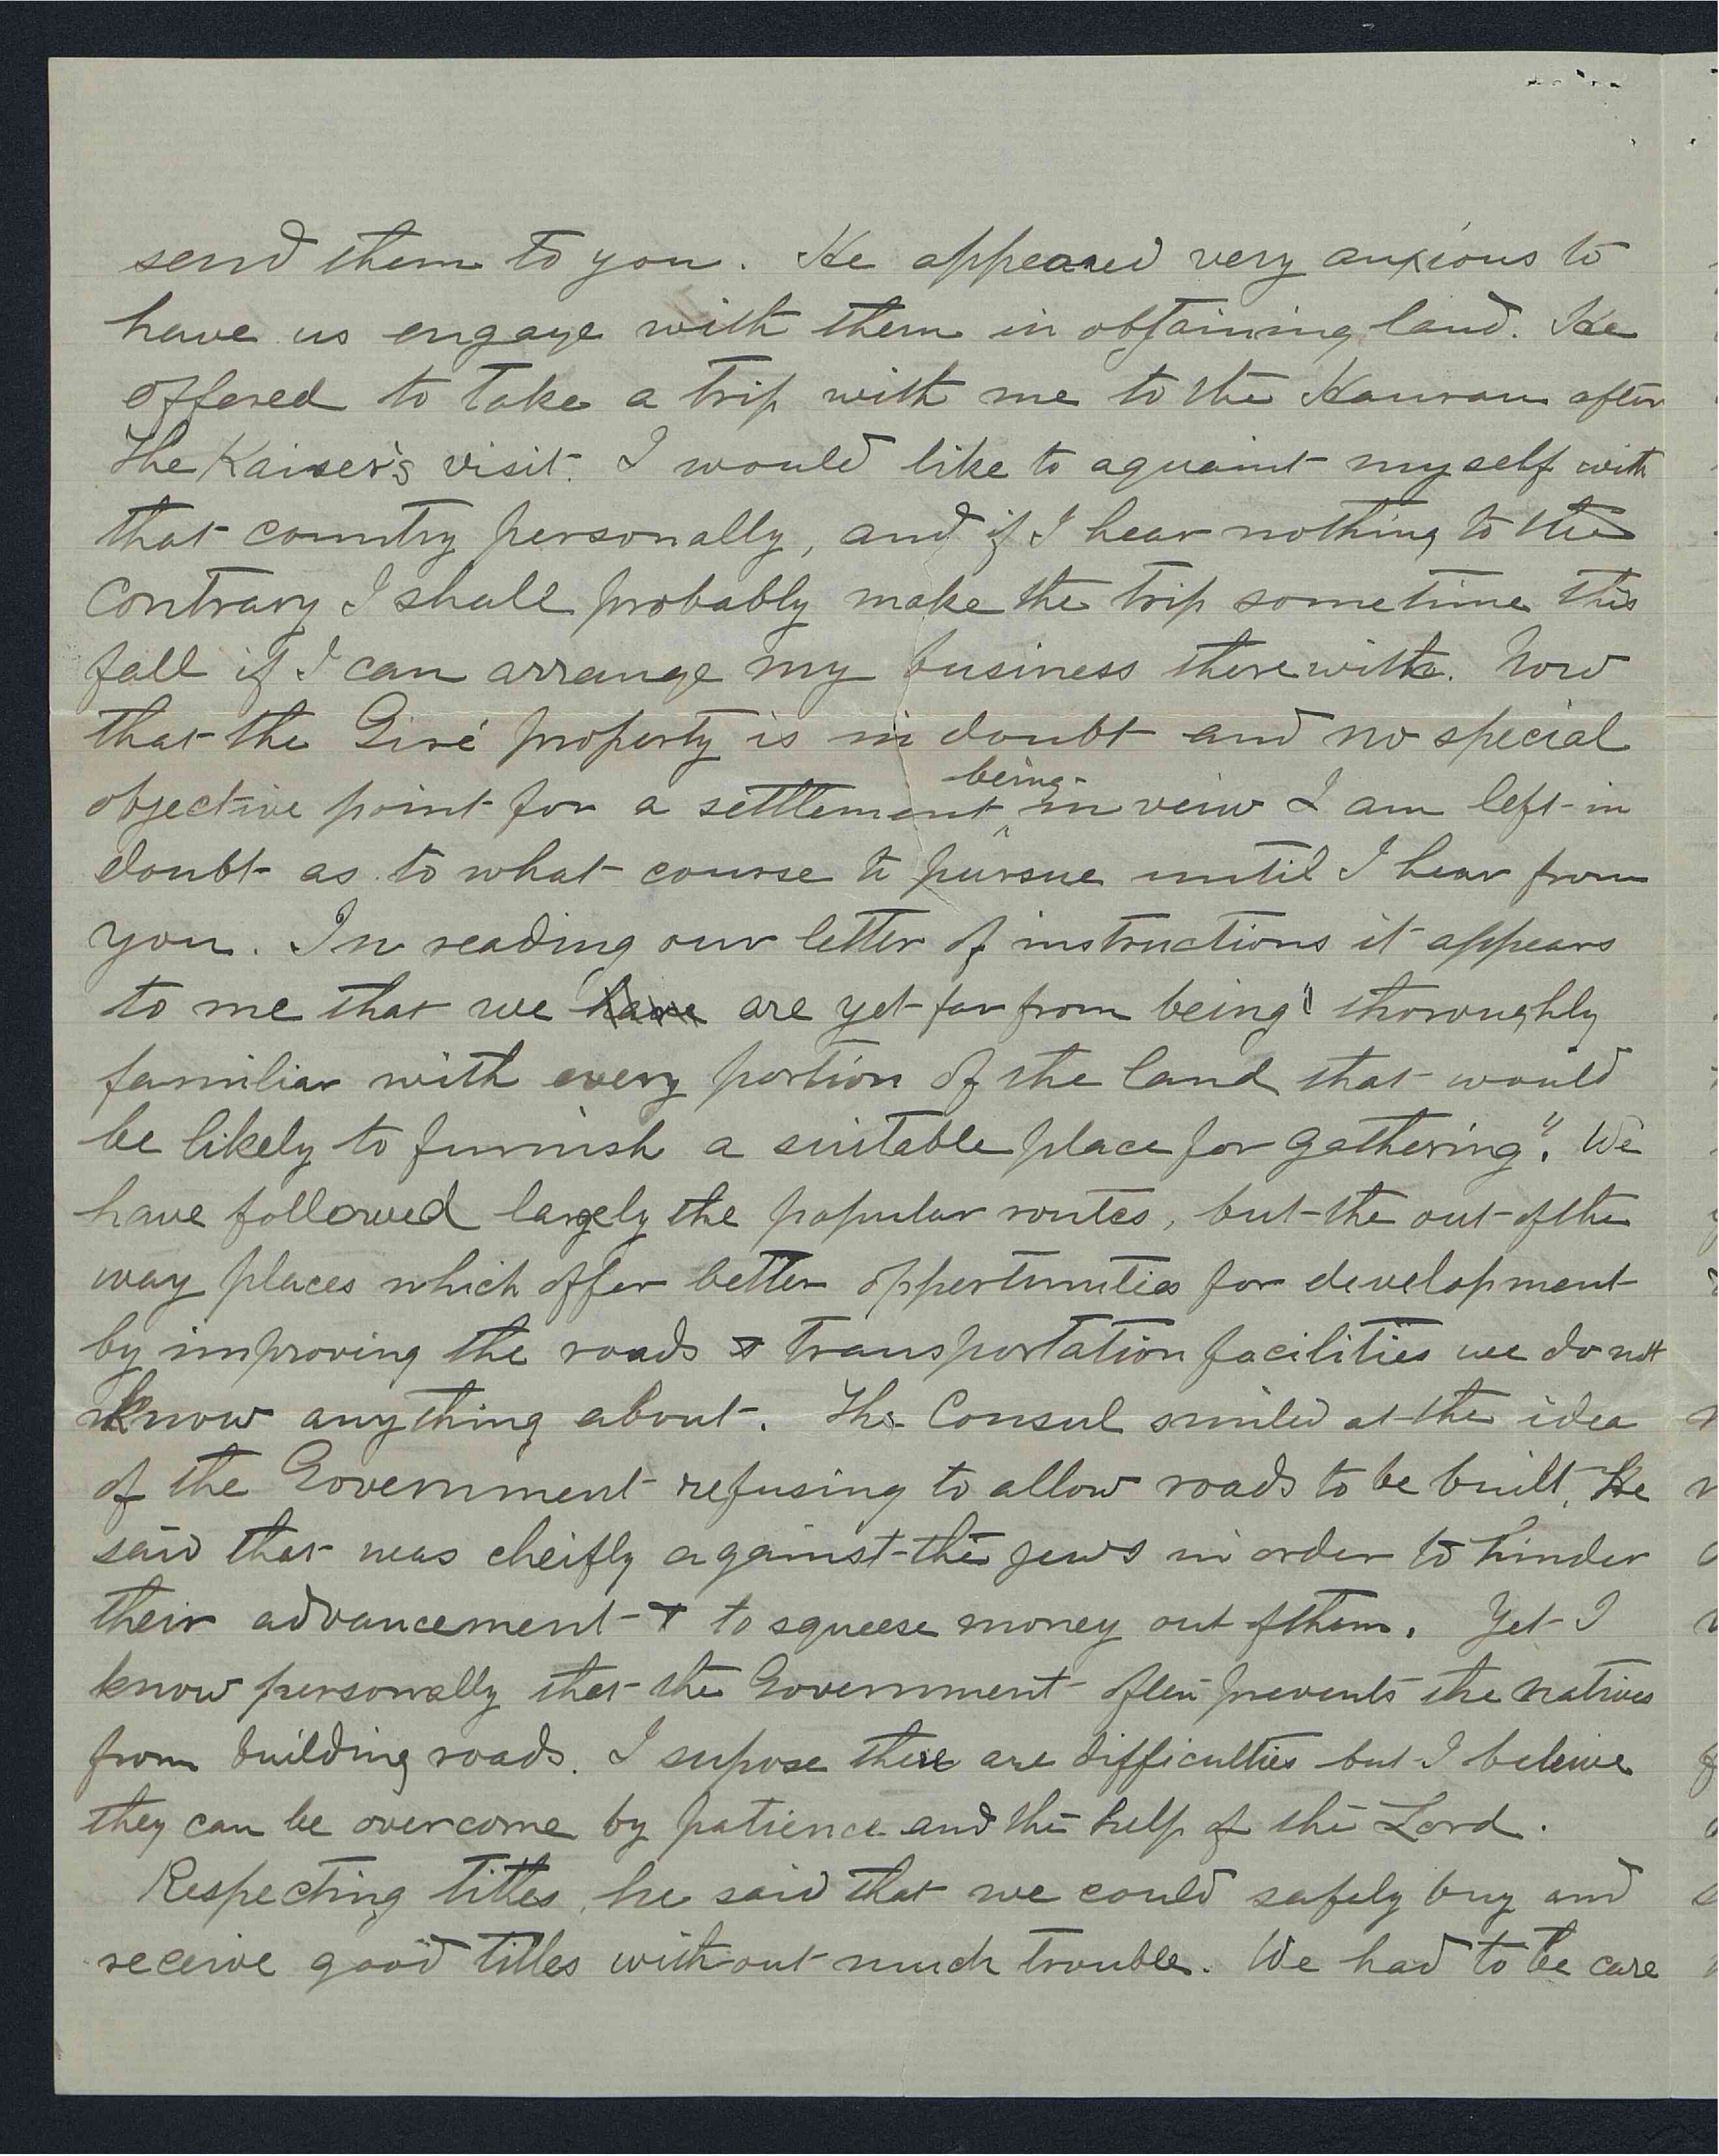 send them to you. He appeared very anxious to
have us engage with them in obtaining land. He
offered to take a trip with me to the Hauran after
the Kaiser's visit. I would like to aquaint myself with
that country personally, and if I hear nothing to the
contrary I shall probably make the trip sometime this
fall if I can arrange my business therewith. Now
that the Siré property is in doubt and no special
objective point for a settlement being in veiw I am left in
doubt as to what course to pursue until I hear from
you. In reading our letter of instructions it appears
to me that we have are yet far from being "thoroughly
familiar with every portion of the land that would
be likely to furnish a suitable place for gathering". We
have followed largely the popular routes, but the out of the
way places which offer better oppertunities for development
by improving the roads & transportation facilities we do not
know anything about. The Consul smiled at the idea
of the Government refusing to allow roads to be built. He
said that was cheifly against the jews in order to hinder
their advancement & to squeese money out of them. Yet I
know personally that the Government often prevents the natives
from building roads. I supose there are difficulties but I beleive
they can be overcome by patience and the help of the Lord.
Respecting titles, he said that we could safely buy and
receive good titles without much trouble. We had to be care